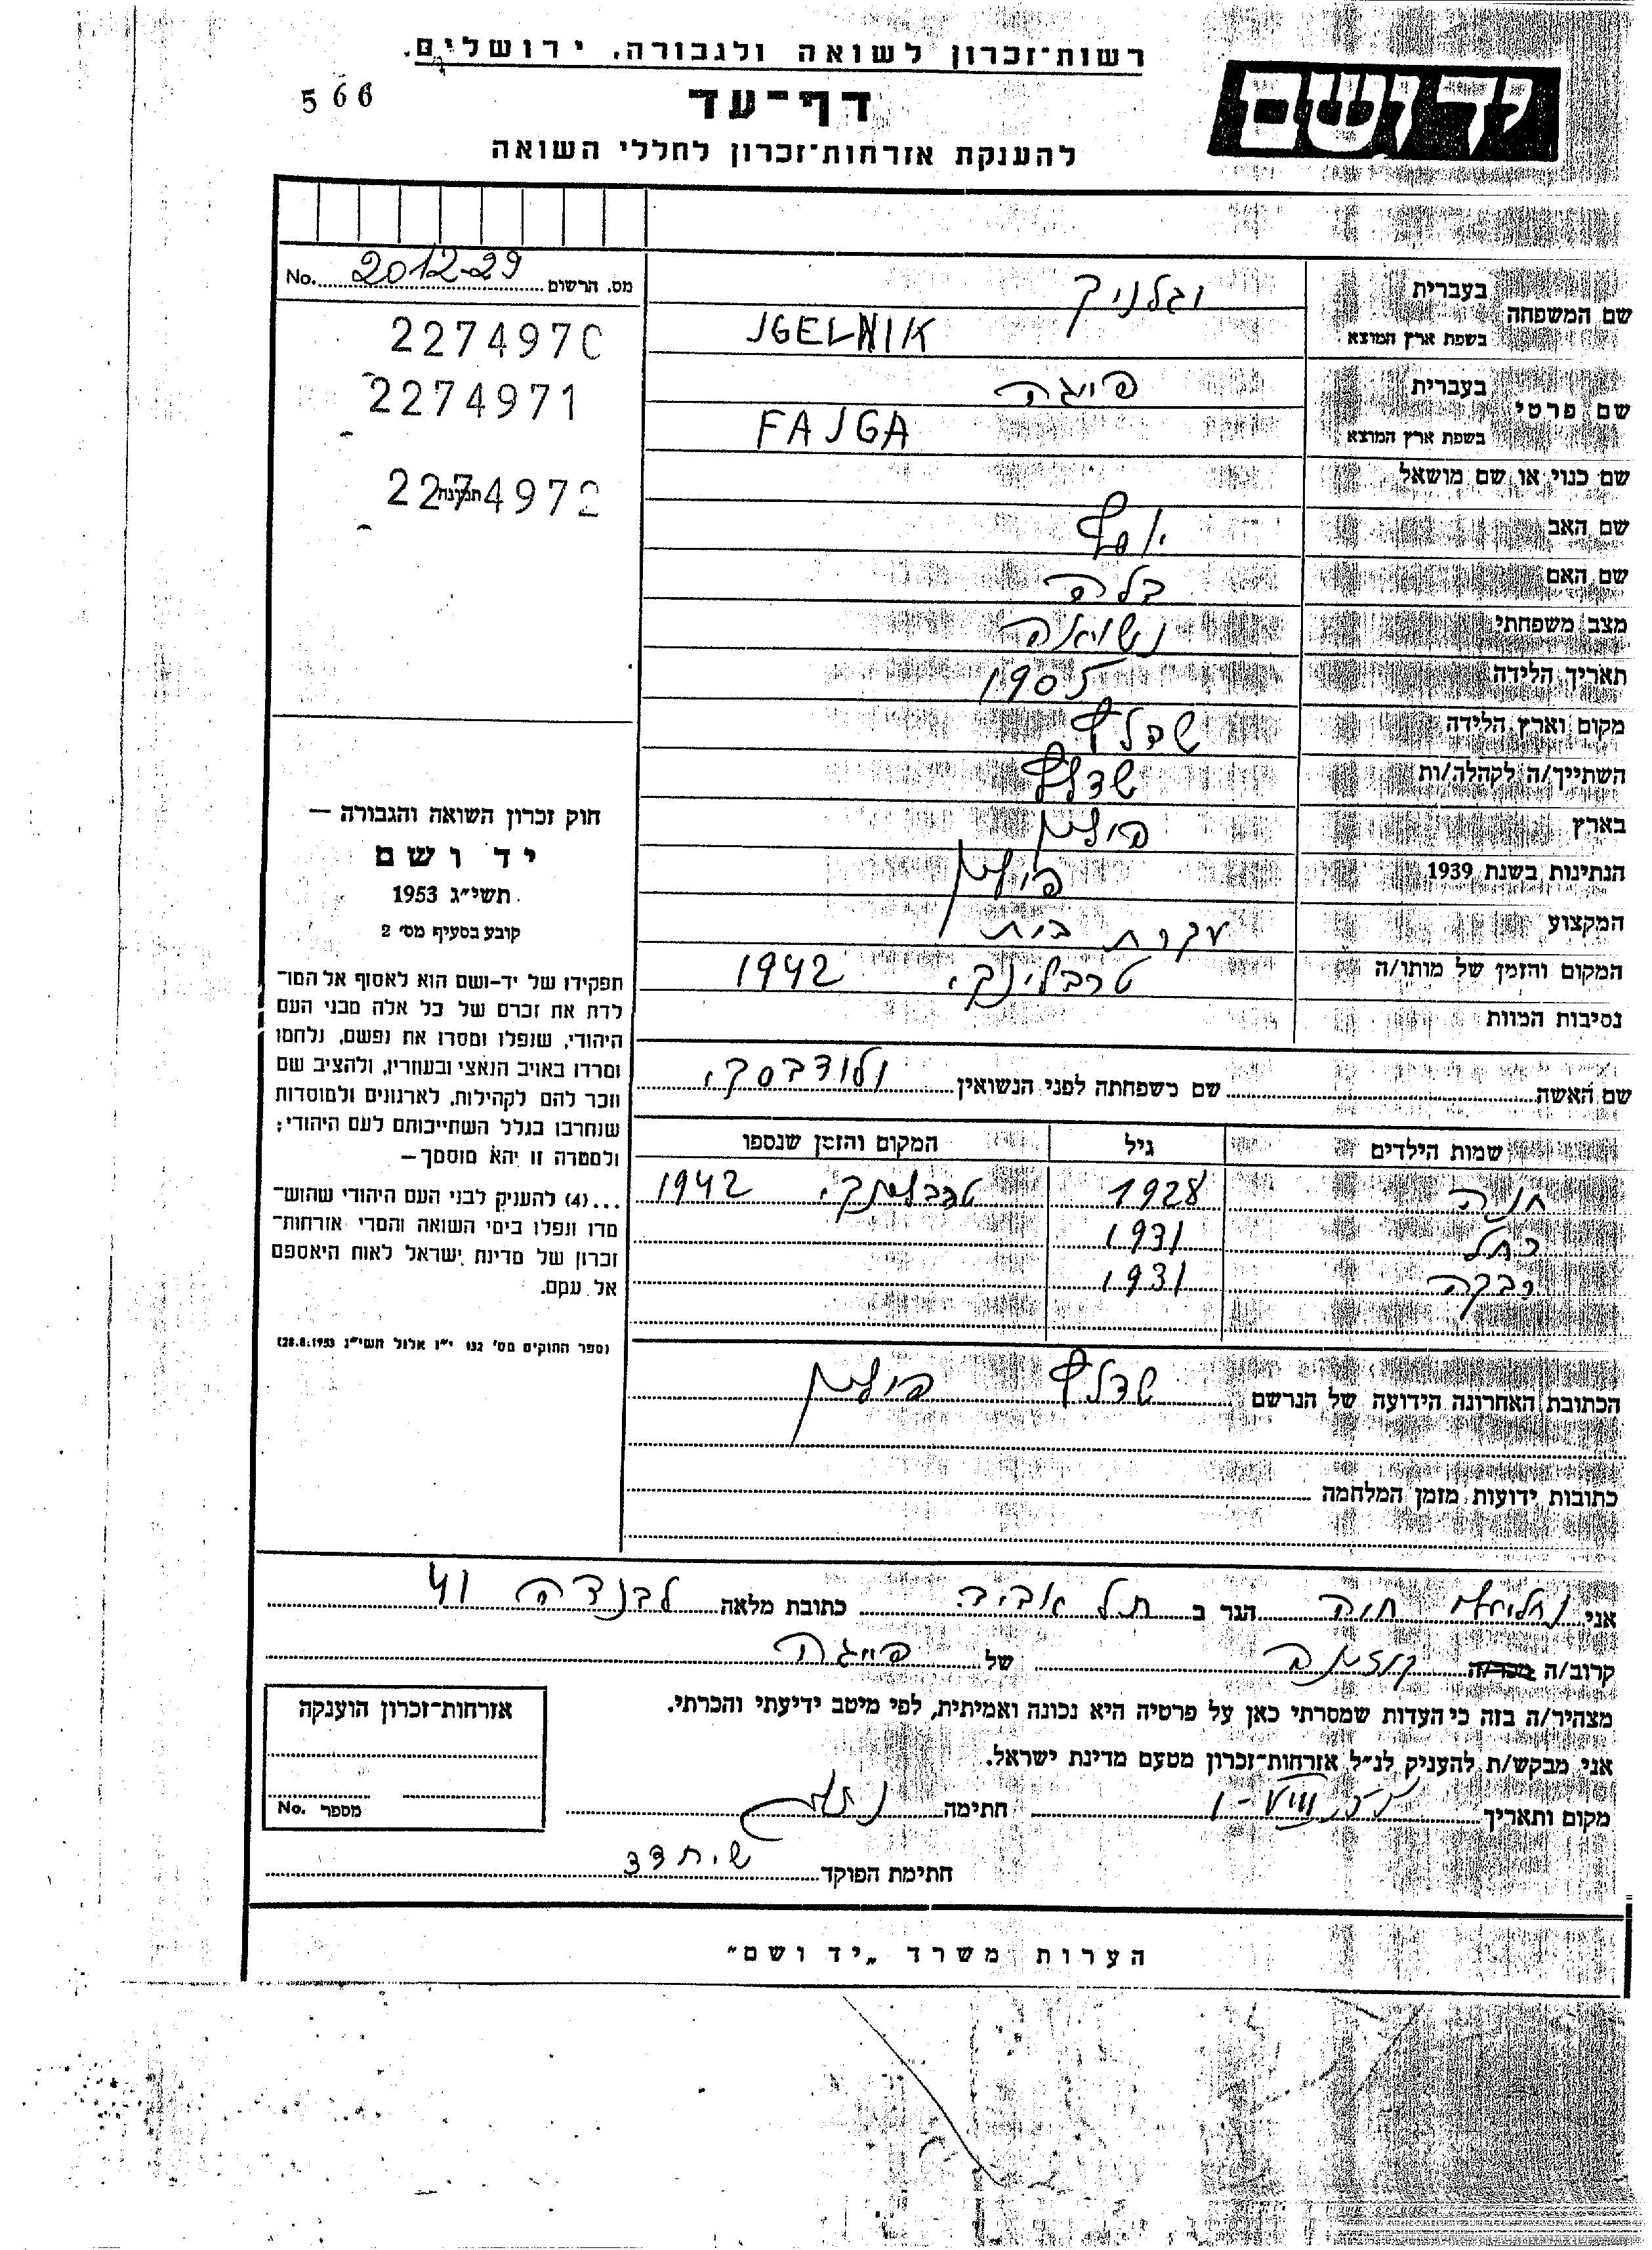 רשות־זכרון לשואה ולגבורה, ירושלים.
יד ושם
566
דף־עד
להענקת אזרחות־זכרון לחללי השואה
מס. הרשום 2012-29 No.
2274970
2274971
תמונה 2274972
שם המשפחה
בעברית
בשפת ארץ המוצא JGELNIK
שם פרטי
בעברית פייגה
בשפת ארץ המוצא FAJGA
שם כנוי או שם מושאל
שם האב יוסף
שם האם בלה
מצב משפחתי נשואה
תאריך הלידה 1905
מקום וארץ הלידה שדלץ
השתייך/ה לקהלה/ות שדלץ
בארץ פולין
הנתינות בשנת 1939 פולין
המקצוע עקרת בית
המקום והזמן של מותו/ה טרבלינקי 1942
נסיבות המוות
שם האשה שם משפחתה לפני הנשואין
שמות הילדים גיל המקום והזמן שנספו
חנה 1928 טרבלינקי 1942
רחל 1931
רבקה 1931
הכתובת האחרונה הידועה של הנרשם שדלץ פולין
כתובות ידועות מזמן המלחמה
חוק זכרון השואה והגבורה —
יד ושם
תשי״ג 1953
קובע בסעיף מס׳ 2
תפקידו של יד-ושם הוא לאסוף אל המו־
לדת את זכרם של כל אלה מבני העם
היהודי, שנפלו ומסרו את נפשם, נלחמו
ומרדו באויב הנאצי ובעוזריו, ולהציב שם
וזכר להם לקהילות, לארגונים ולמוסדות
שנחרבו בגלל השתייכותם לעם היהודי;
ולמטרה זו יהא מוסמך —
...(4) להעניק לבני העם היהודי שהוש־
מדו ונפלו בימי השואה והמרי אזרחות־
זכרון של מדינת ישראל לאות היאספם
אל עמם.
(ספר החוקים מס׳ 132 י״ז אלול תשי״ג 28.8.1953)
אני חיה הגר ב תל אביב כתובת מלאה לבנדה 41
קרוב/ה מכר/ה של פייגה
מצהיר/ה בזה כי העדות שמסרתי כאן על פרטיה היא נכונה ואמיתית, לפי מיטב ידיעתי והכרתי.
אני מבקש/ת להעניק לנ״ל אזרחות־זכרון מטעם מדינת ישראל.
מקום ותאריך חתימה
חתימת הפוקד
אזרחות־זכרון הוענקה
מספר No.
הערות משרד „יד ושם״